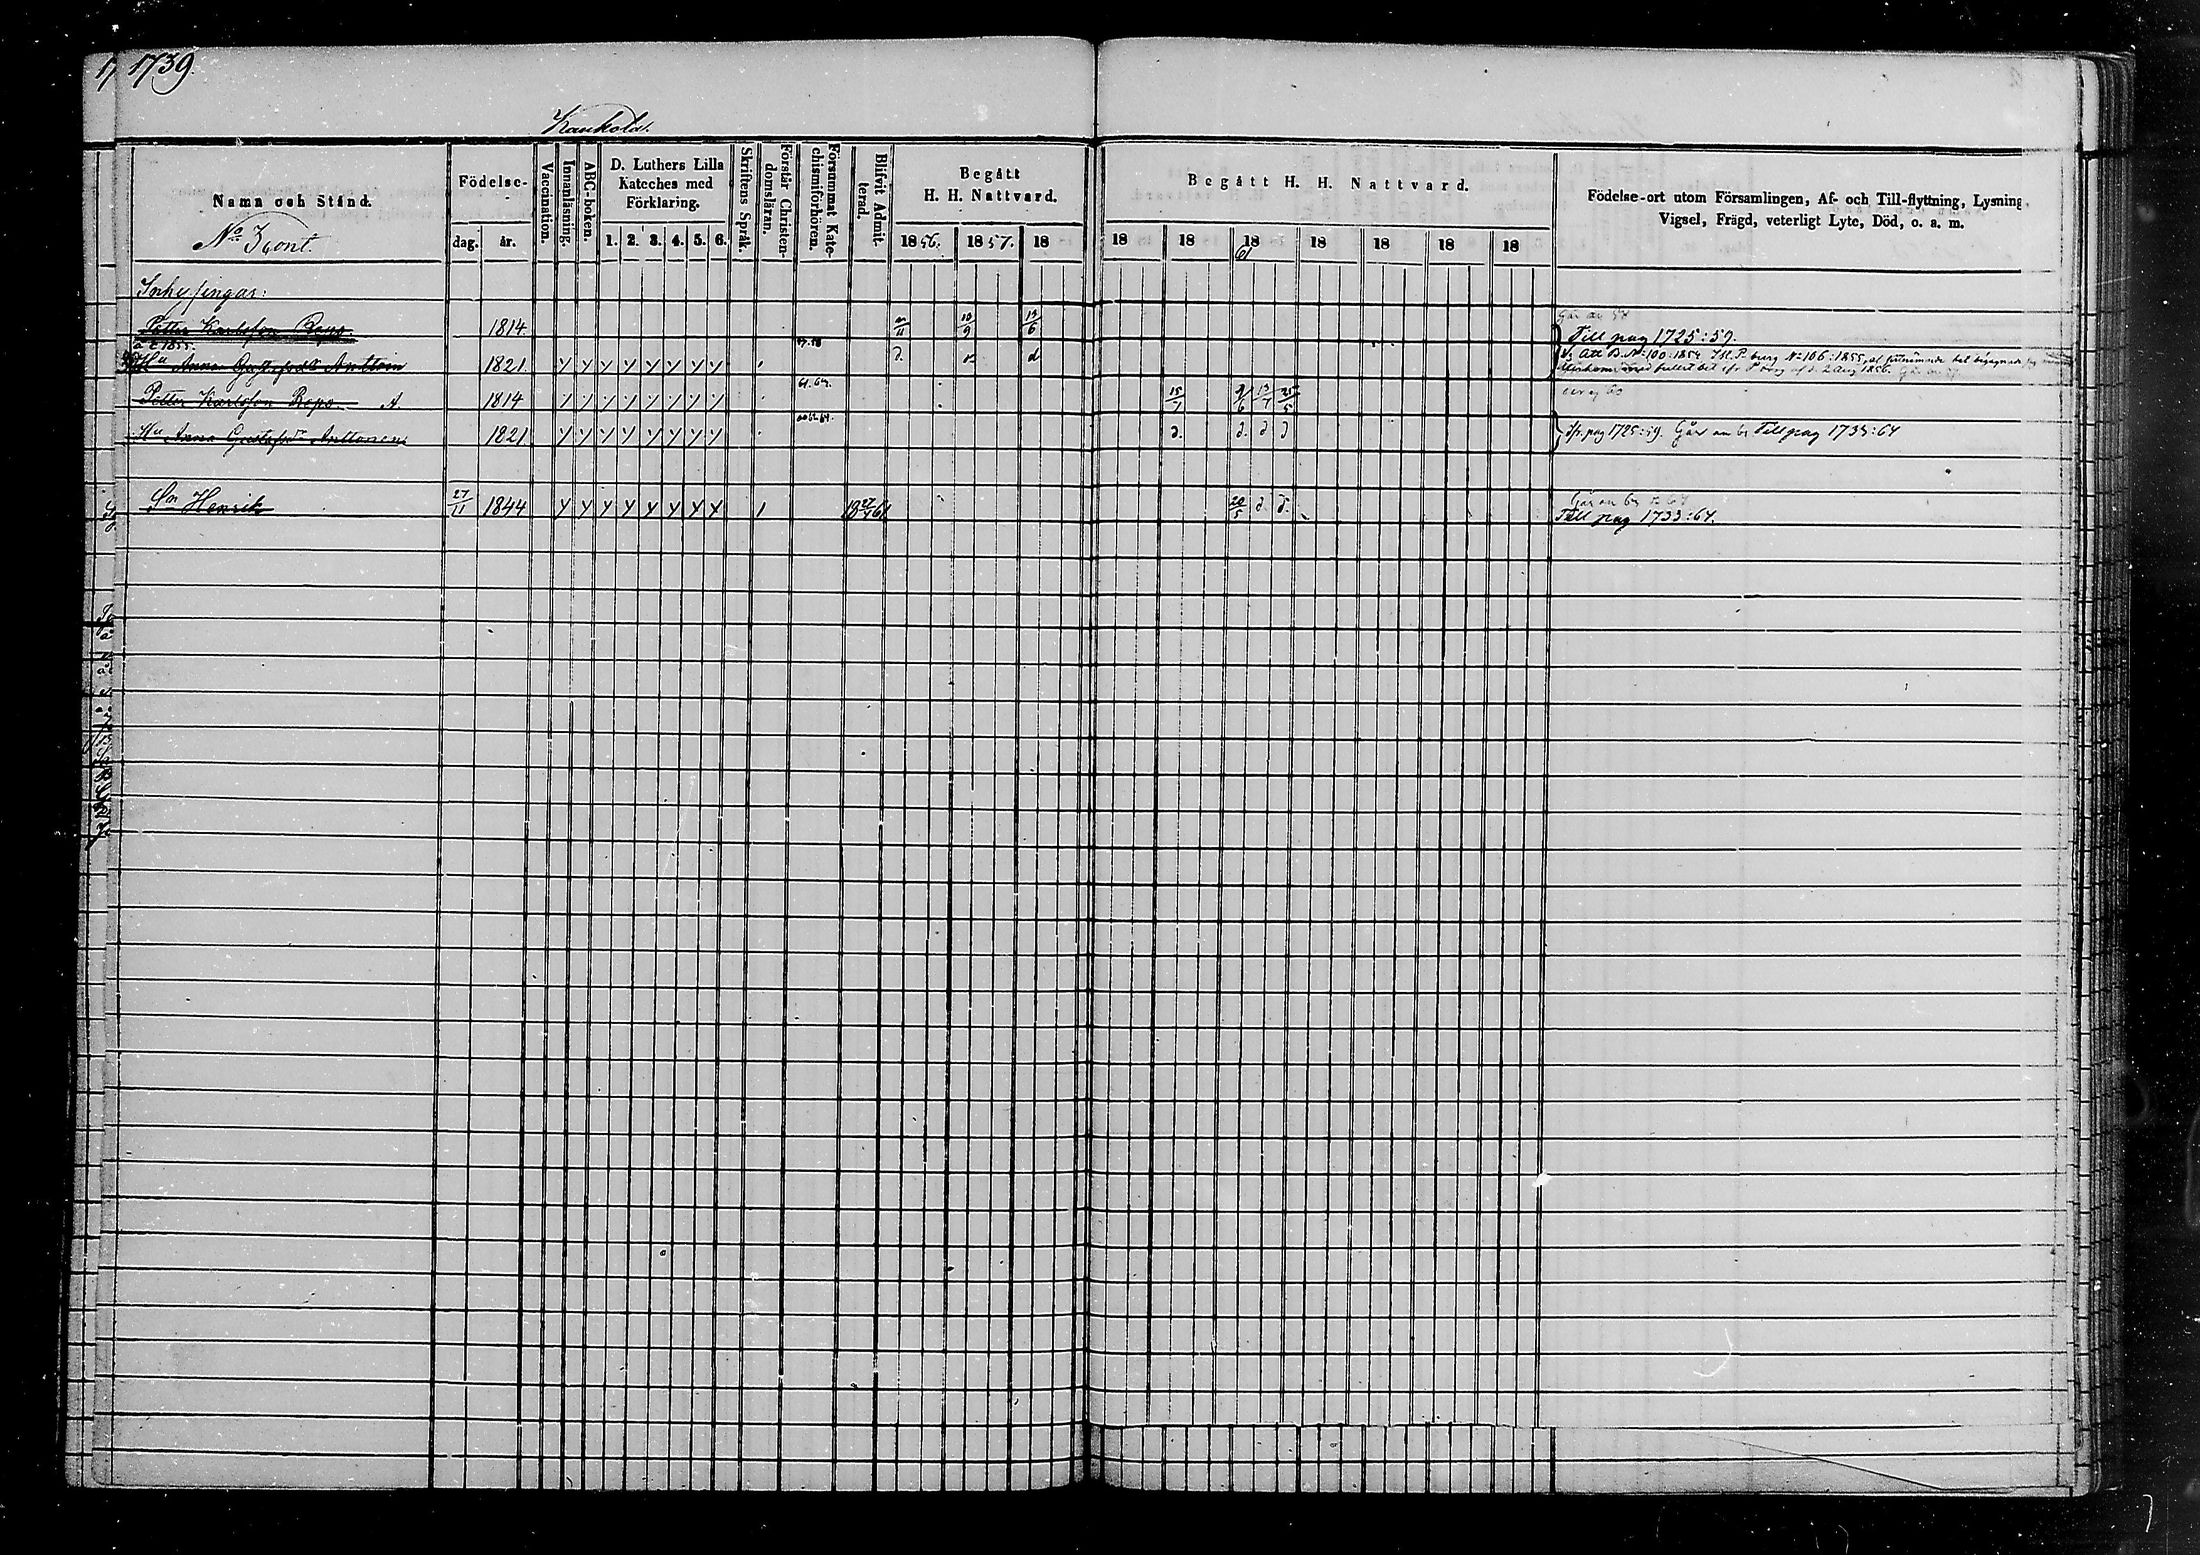 1739.
Kaukola.
Namn och Stånd.
No 3 cont.
Födelse-
dag. år.
Vaccination.
Innanläsning.
ABC-boken.
D. Luthers Lilla
Kateches med
Förklaring.
1. 2. 3. 4. 5. 6.
Skriftens Språk.
Förstår Christen-
domsläran.
Försummat Kate-
chismiförhören.
Blifvit Admit-
terad.
Begått
H. H. Nattvard.
1856. 1857. 18
Begått H. H. Nattvard.
18 18 18 61 18 18 18 18
Födelse-ort utom Församlingen, Af- och Till-flyttning, Lysning,
Vigsel, Frägd, veterligt Lyte, Död, o. a. m.
Inhysingar:
Petter Karlsson Repo. 1814 10/9 12/6 Till pag 1725:59.
Hu Anna Gustafsdr 1821 y y y y y y y y d. d Att B. No 100:1854 No 106:1855 2 Aug 1856.
Petter Karlsson Repo. A. 1814 y y y y y y y y 61.64.
Hu Anna Gustafsdr Anttonen 1821 y y y y y y y y d. d. d d pag 1725:59. Går an Till pag 1733:64
Sn Henrik 27/11 1844 y y y y y y y y 1 20/5 d d. Till pag 1733:64.